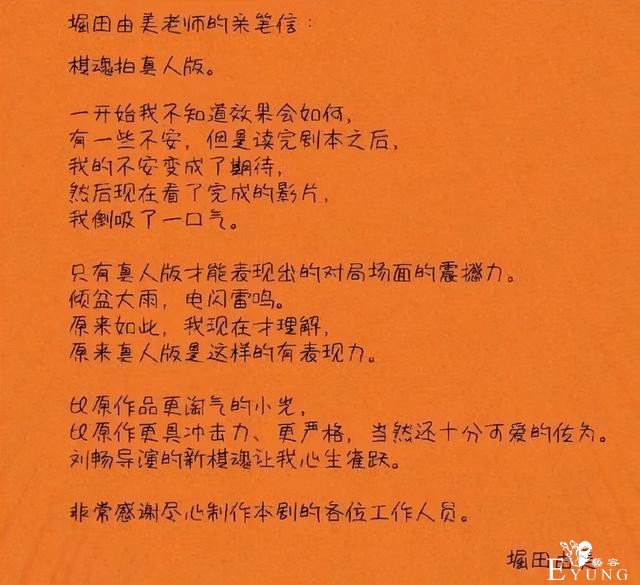 堀田由美老师的亲笔信：
棋魂拍真人版。
一开始我不知道效果会如何，
有一些不安，但是读完剧本之后，
我的不安变成了期待，
然后现在看了完成的影片，
我倒吸了一口气。
只有真人版才能表现出的对局场面的震撼力。
倾盆大雨，电闪雷鸣。
原来如此，我现在才理解，
原来真人版是这样的有表现力。
比原作品更淘气的小光，
比原作更具冲击力、更严格，当然还十分可爱的佐为。
刘畅导演的新棋魂让我心生雀跃。
非常感谢尽心制作本剧的各位工作人员。
堀田由美
藝容
EYUNG